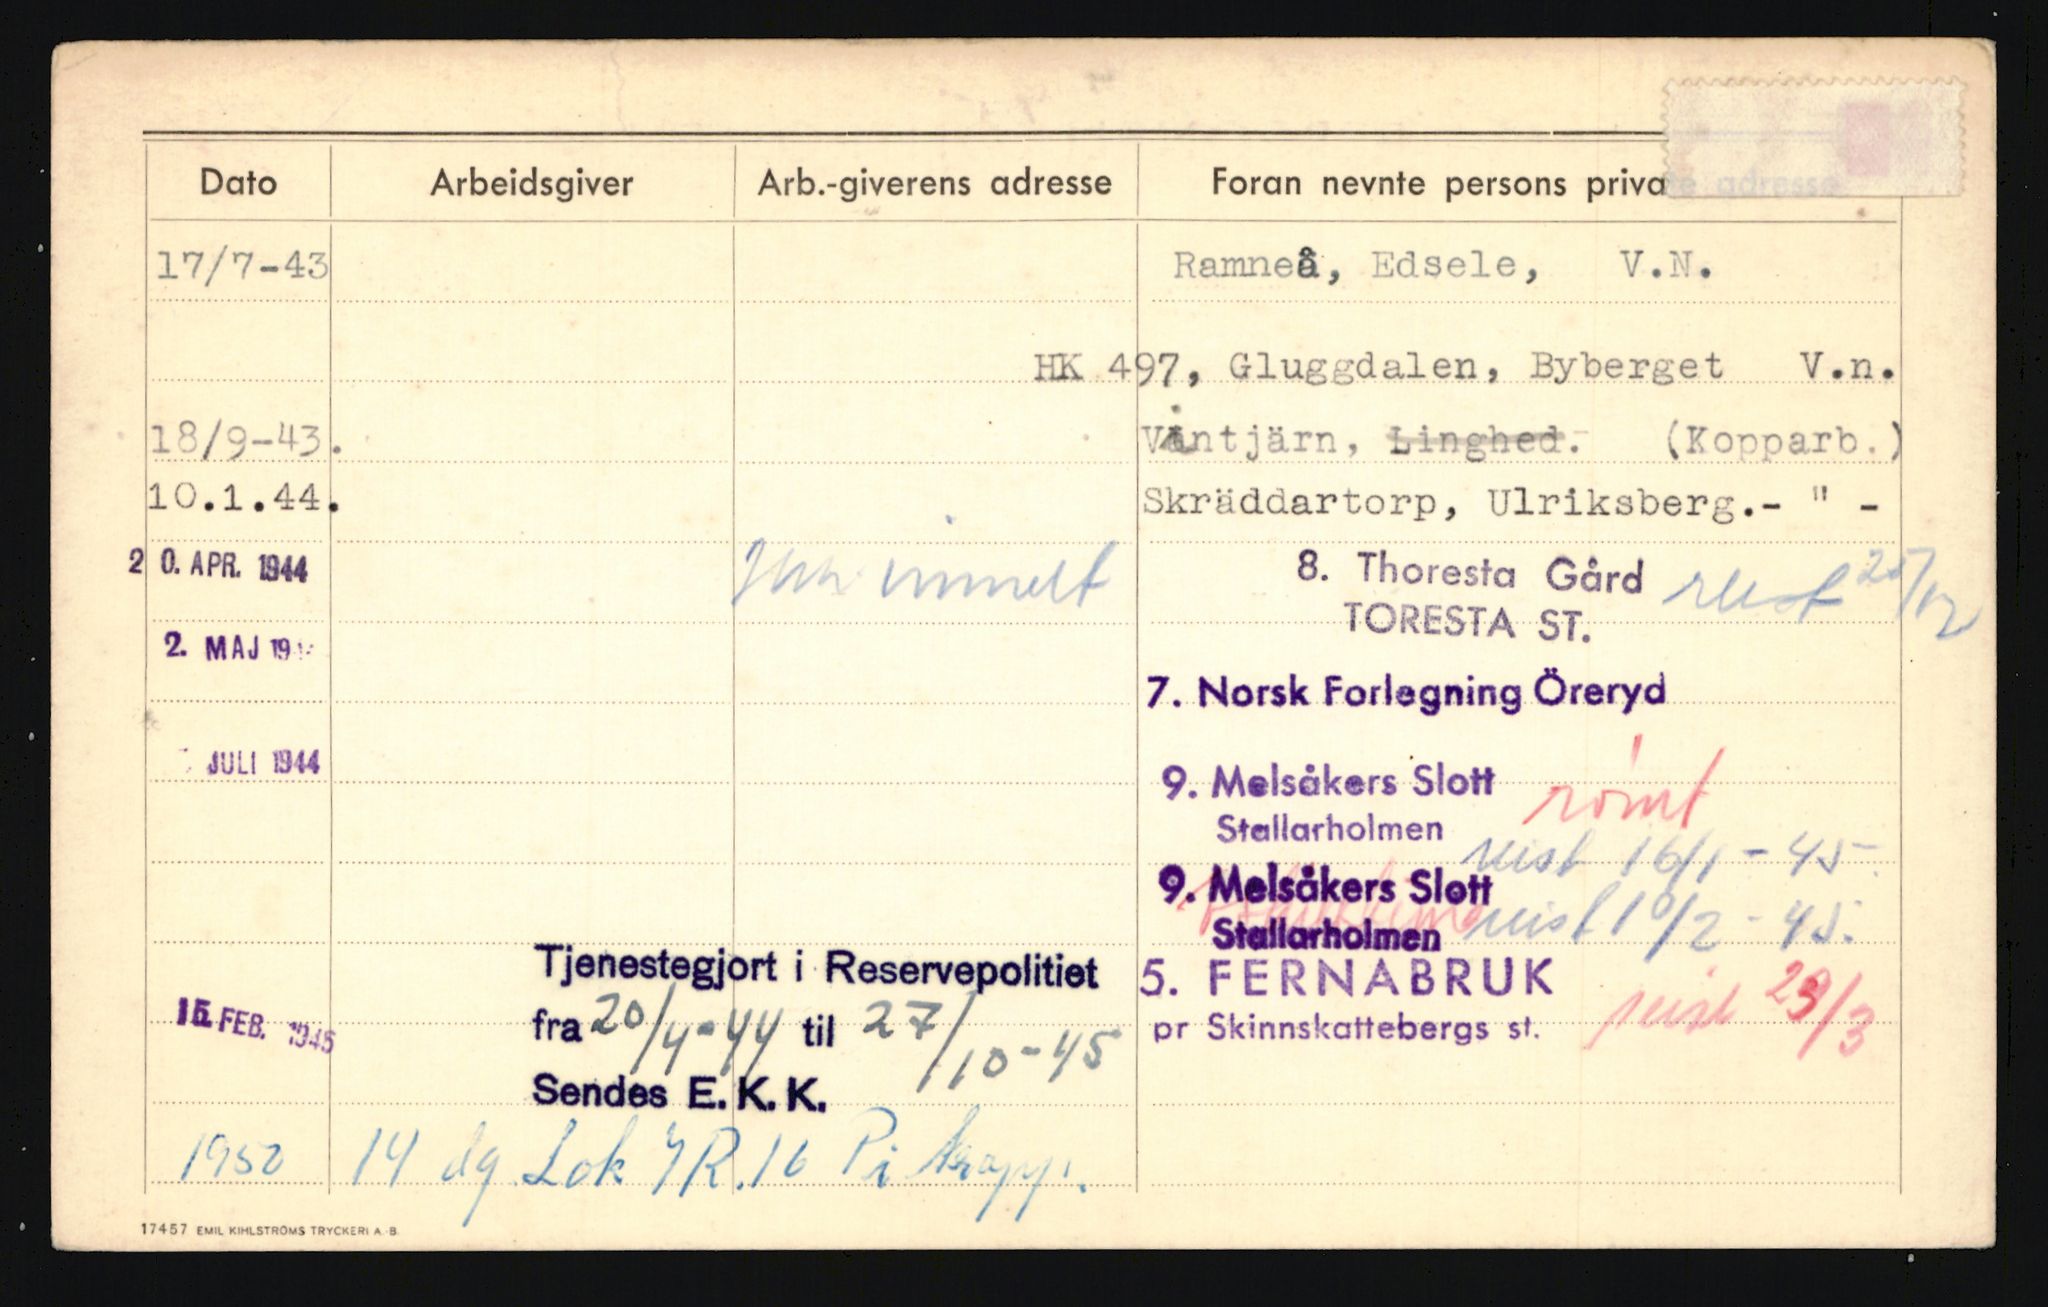 Dato Arbeidsgiver Arb.-giverens adresse Foran nevnte persons private adresse
17/7-43 Ramneå, Edsele, V.N.
HK 497, Gluggdalen, Byberget V.n.
18/9-43. Vintjärn, Linghed. (Kopparb.)
10.1.44. Skräddartorp, Ulriksberg.- " -
20. APR. 1944 8. Thoresta Gård reist
TORESTA ST.
2. MAJ 19
7. Norsk Forlegning Öreryd
JULI 1944 9. Melsåkers Slott rømt
Stallarholmen
reist 16/1-45.
9. Melsåkers Slott
Stallarholmen reist 10/2-45.
Tjenestegjort i Reservepolitiet 5. FERNABRUK
15. FEB. 1945 fra 20/4-44 til 27/10-45 pr Skinnskattebergs st. reist
Sendes E.K.K.
1950 14 dg. Lok IR.16
17457 EMIL KIHLSTRÖMS TRYCKERI A.-B.